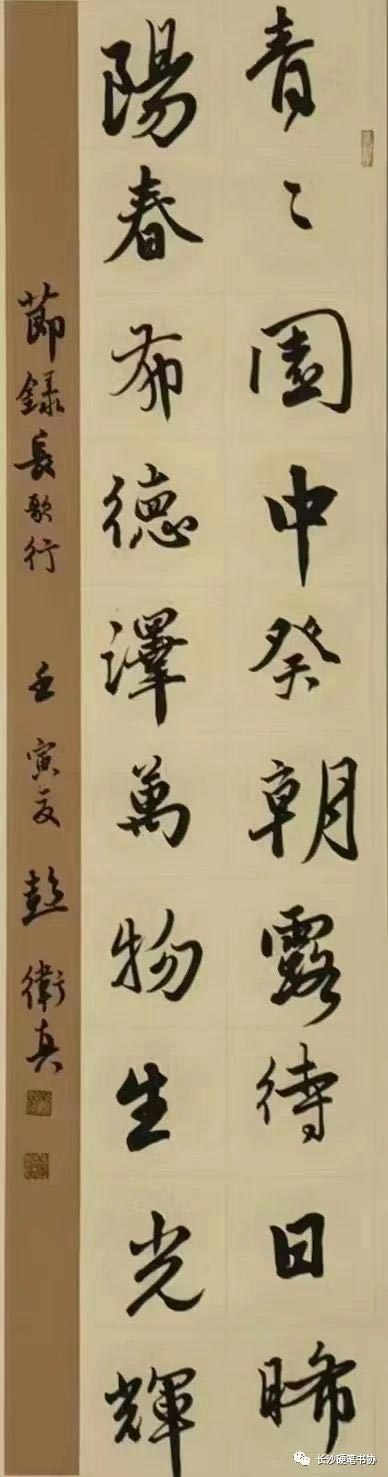 青〻園中癸朝露待日晞
陽春布德澤萬物生光輝
節錄長歌行 壬寅夏 彭衛真
长沙硬笔书协